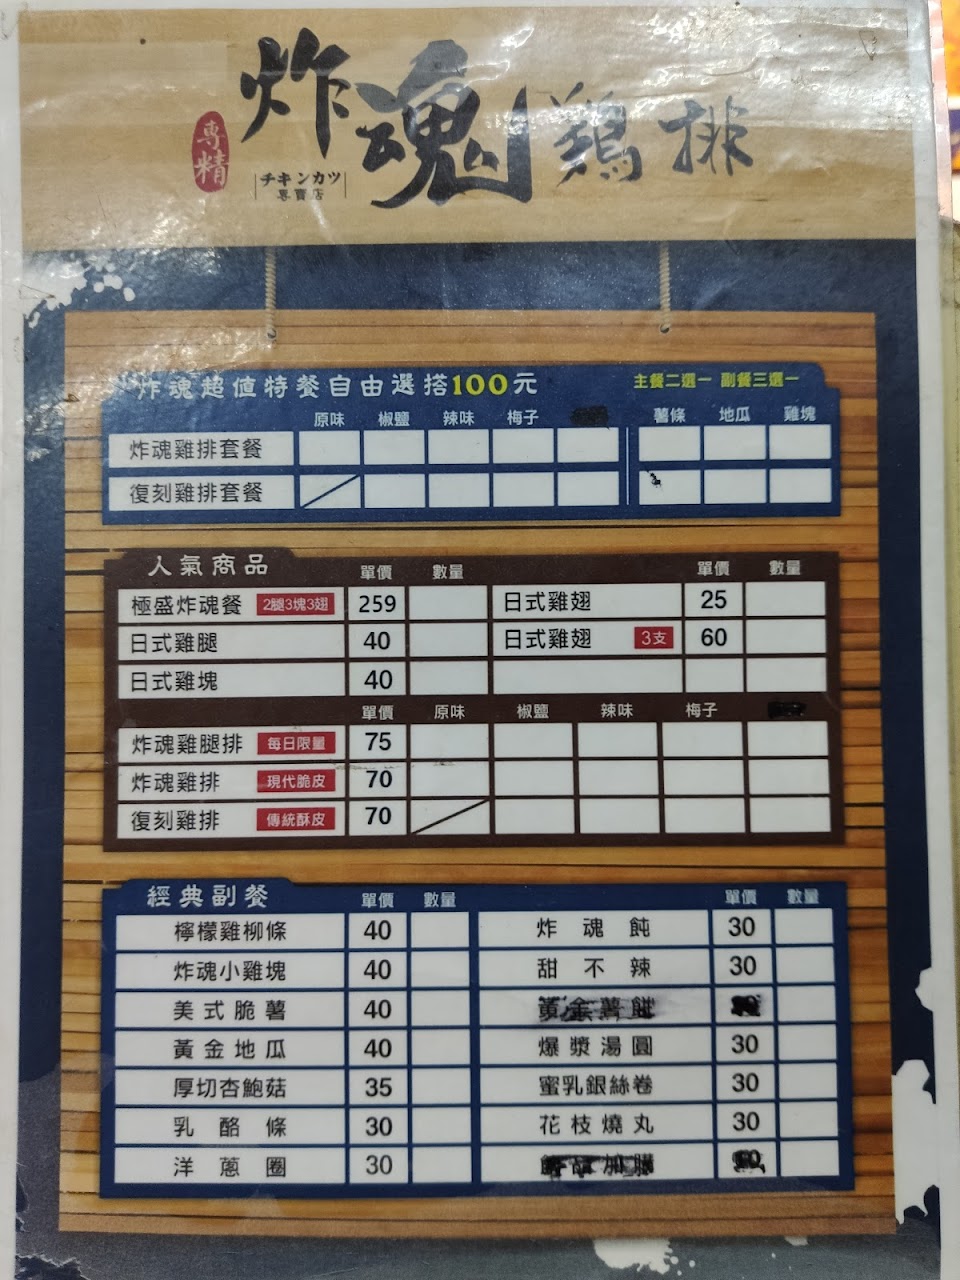 專精
炸魂鷄排
チキンカツ
專賣店
炸魂超值特餐自由選搭100元 主餐二選一 副餐三選一
原味 椒鹽 辣味 梅子 薯條 地瓜 雞塊
炸魂雞排套餐
復刻雞排套餐
人氣商品 單價 數量 單價 數量
極盛炸魂餐 2腿3塊3翅 259 日式雞翅 25
日式雞腿 40 日式雞翅 3支 60
日式雞塊 40
單價 原味 椒鹽 辣味 梅子
炸魂雞腿排 每日限量 75
炸魂雞排 現代脆皮 70
復刻雞排 傳統酥皮 70
經典副餐 單價 數量 單價 數量
檸檬雞柳條 40 炸魂飩 30
炸魂小雞塊 40 甜不辣 30
美式脆薯 40 黃金薯餅
黃金地瓜 40 爆漿湯圓 30
厚切杏鮑菇 35 蜜乳銀絲卷 30
乳酪條 30 花枝燒丸 30
洋蔥圈 30